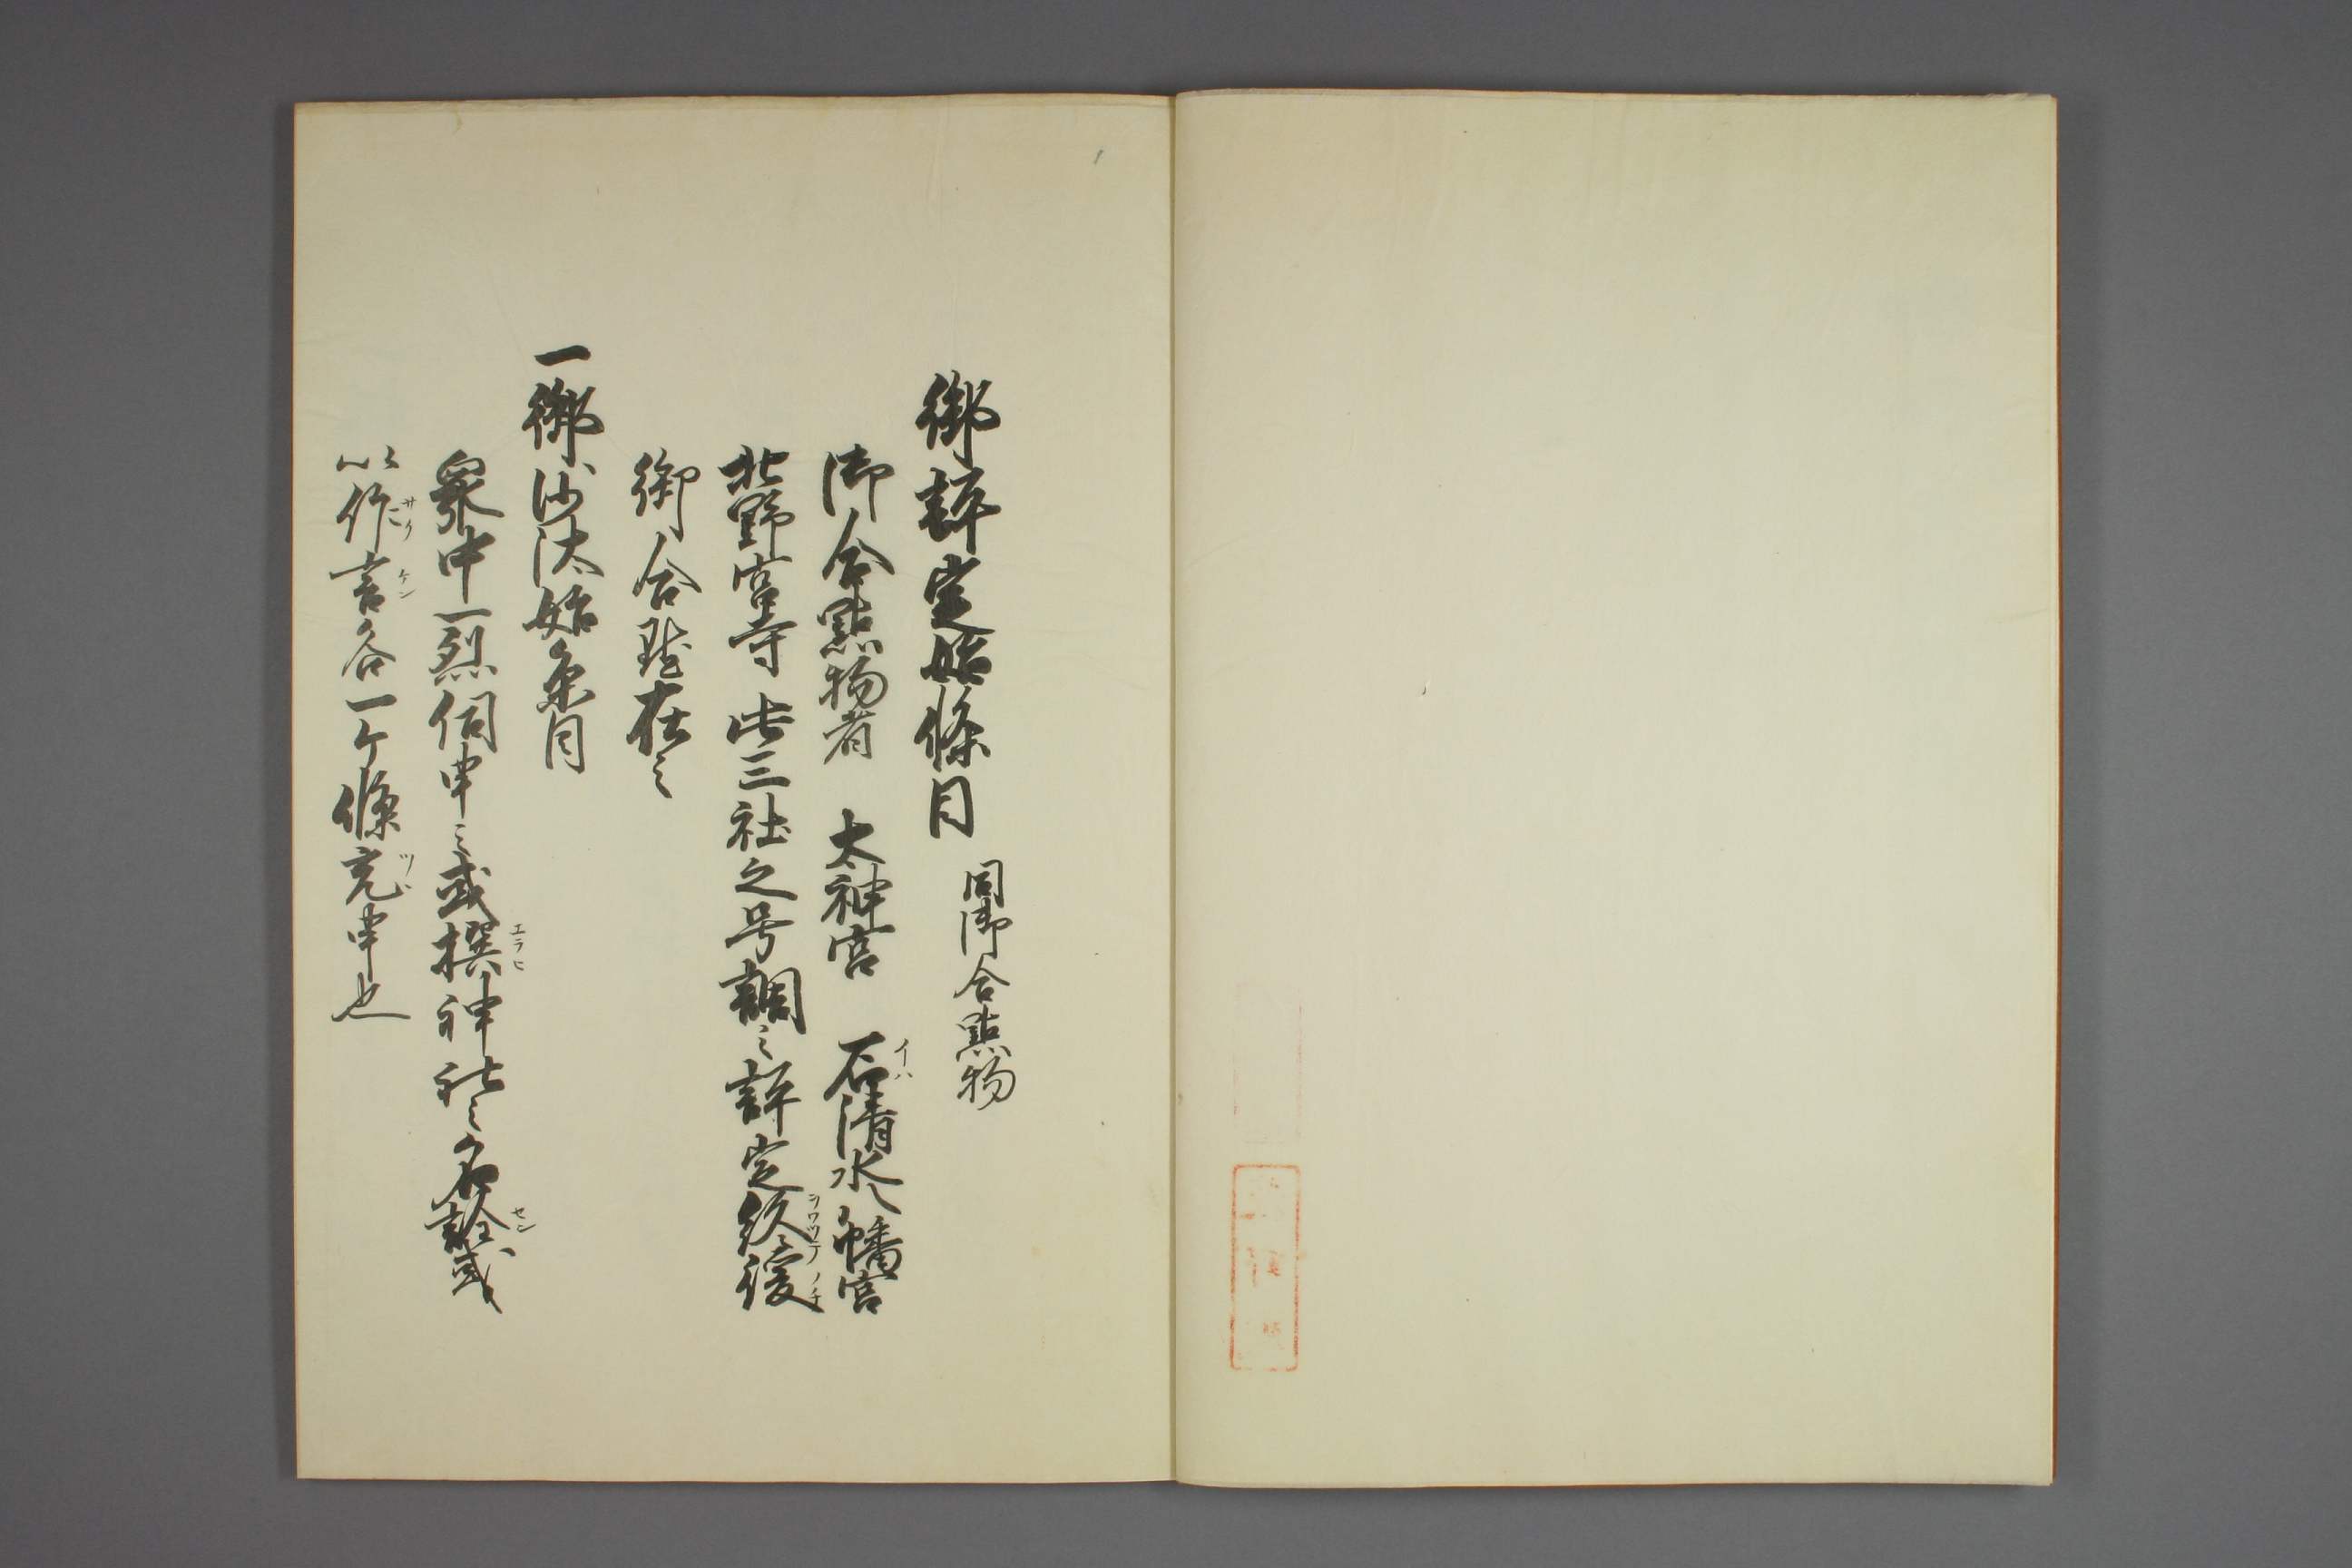 御評定始條目 同御合點物
御合點物者 太神宮 石清水八幡宮
北野宮寺 此三社之号調之評定終後
御合點在之
一御沙汰始条目
衆中一烈伺申之或撰神社之名詮或
以作言各一ケ條充申也